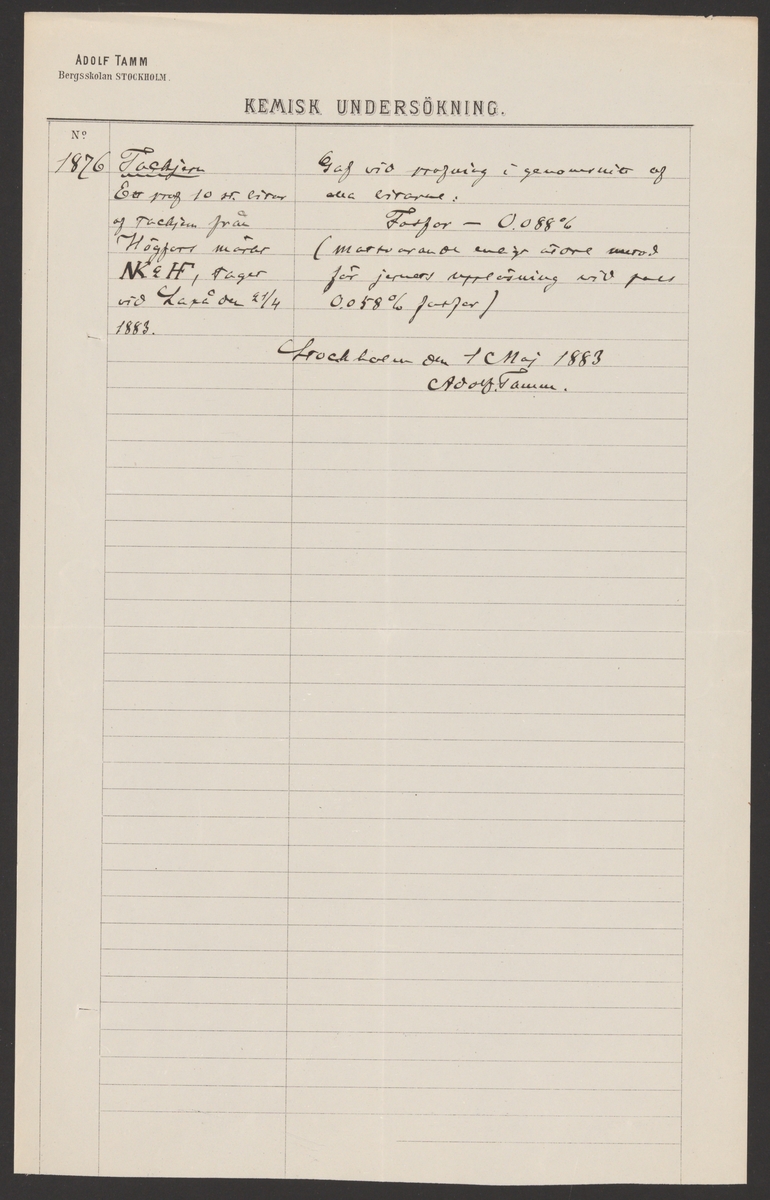 ADOLF TAMM
Bergsskolan STOCKHOLM.
KEMISK UNDERSÖKNING.
No
1876
Tackjern
Ett prof 10 st. bitar
af Tackjern från
Högfors märkt
NK & HF, taget
vid Laxå den 21/4
1883.
Gaf vid profning i genomsnitt af
alla bitarne:
Fosfor — 0.088%
(motsvarande enligt äldre metod
för jernets upplösning vid pass
0.058% fosfor)
Stockholm den 1 Maj 1883
Adolf Tamm.